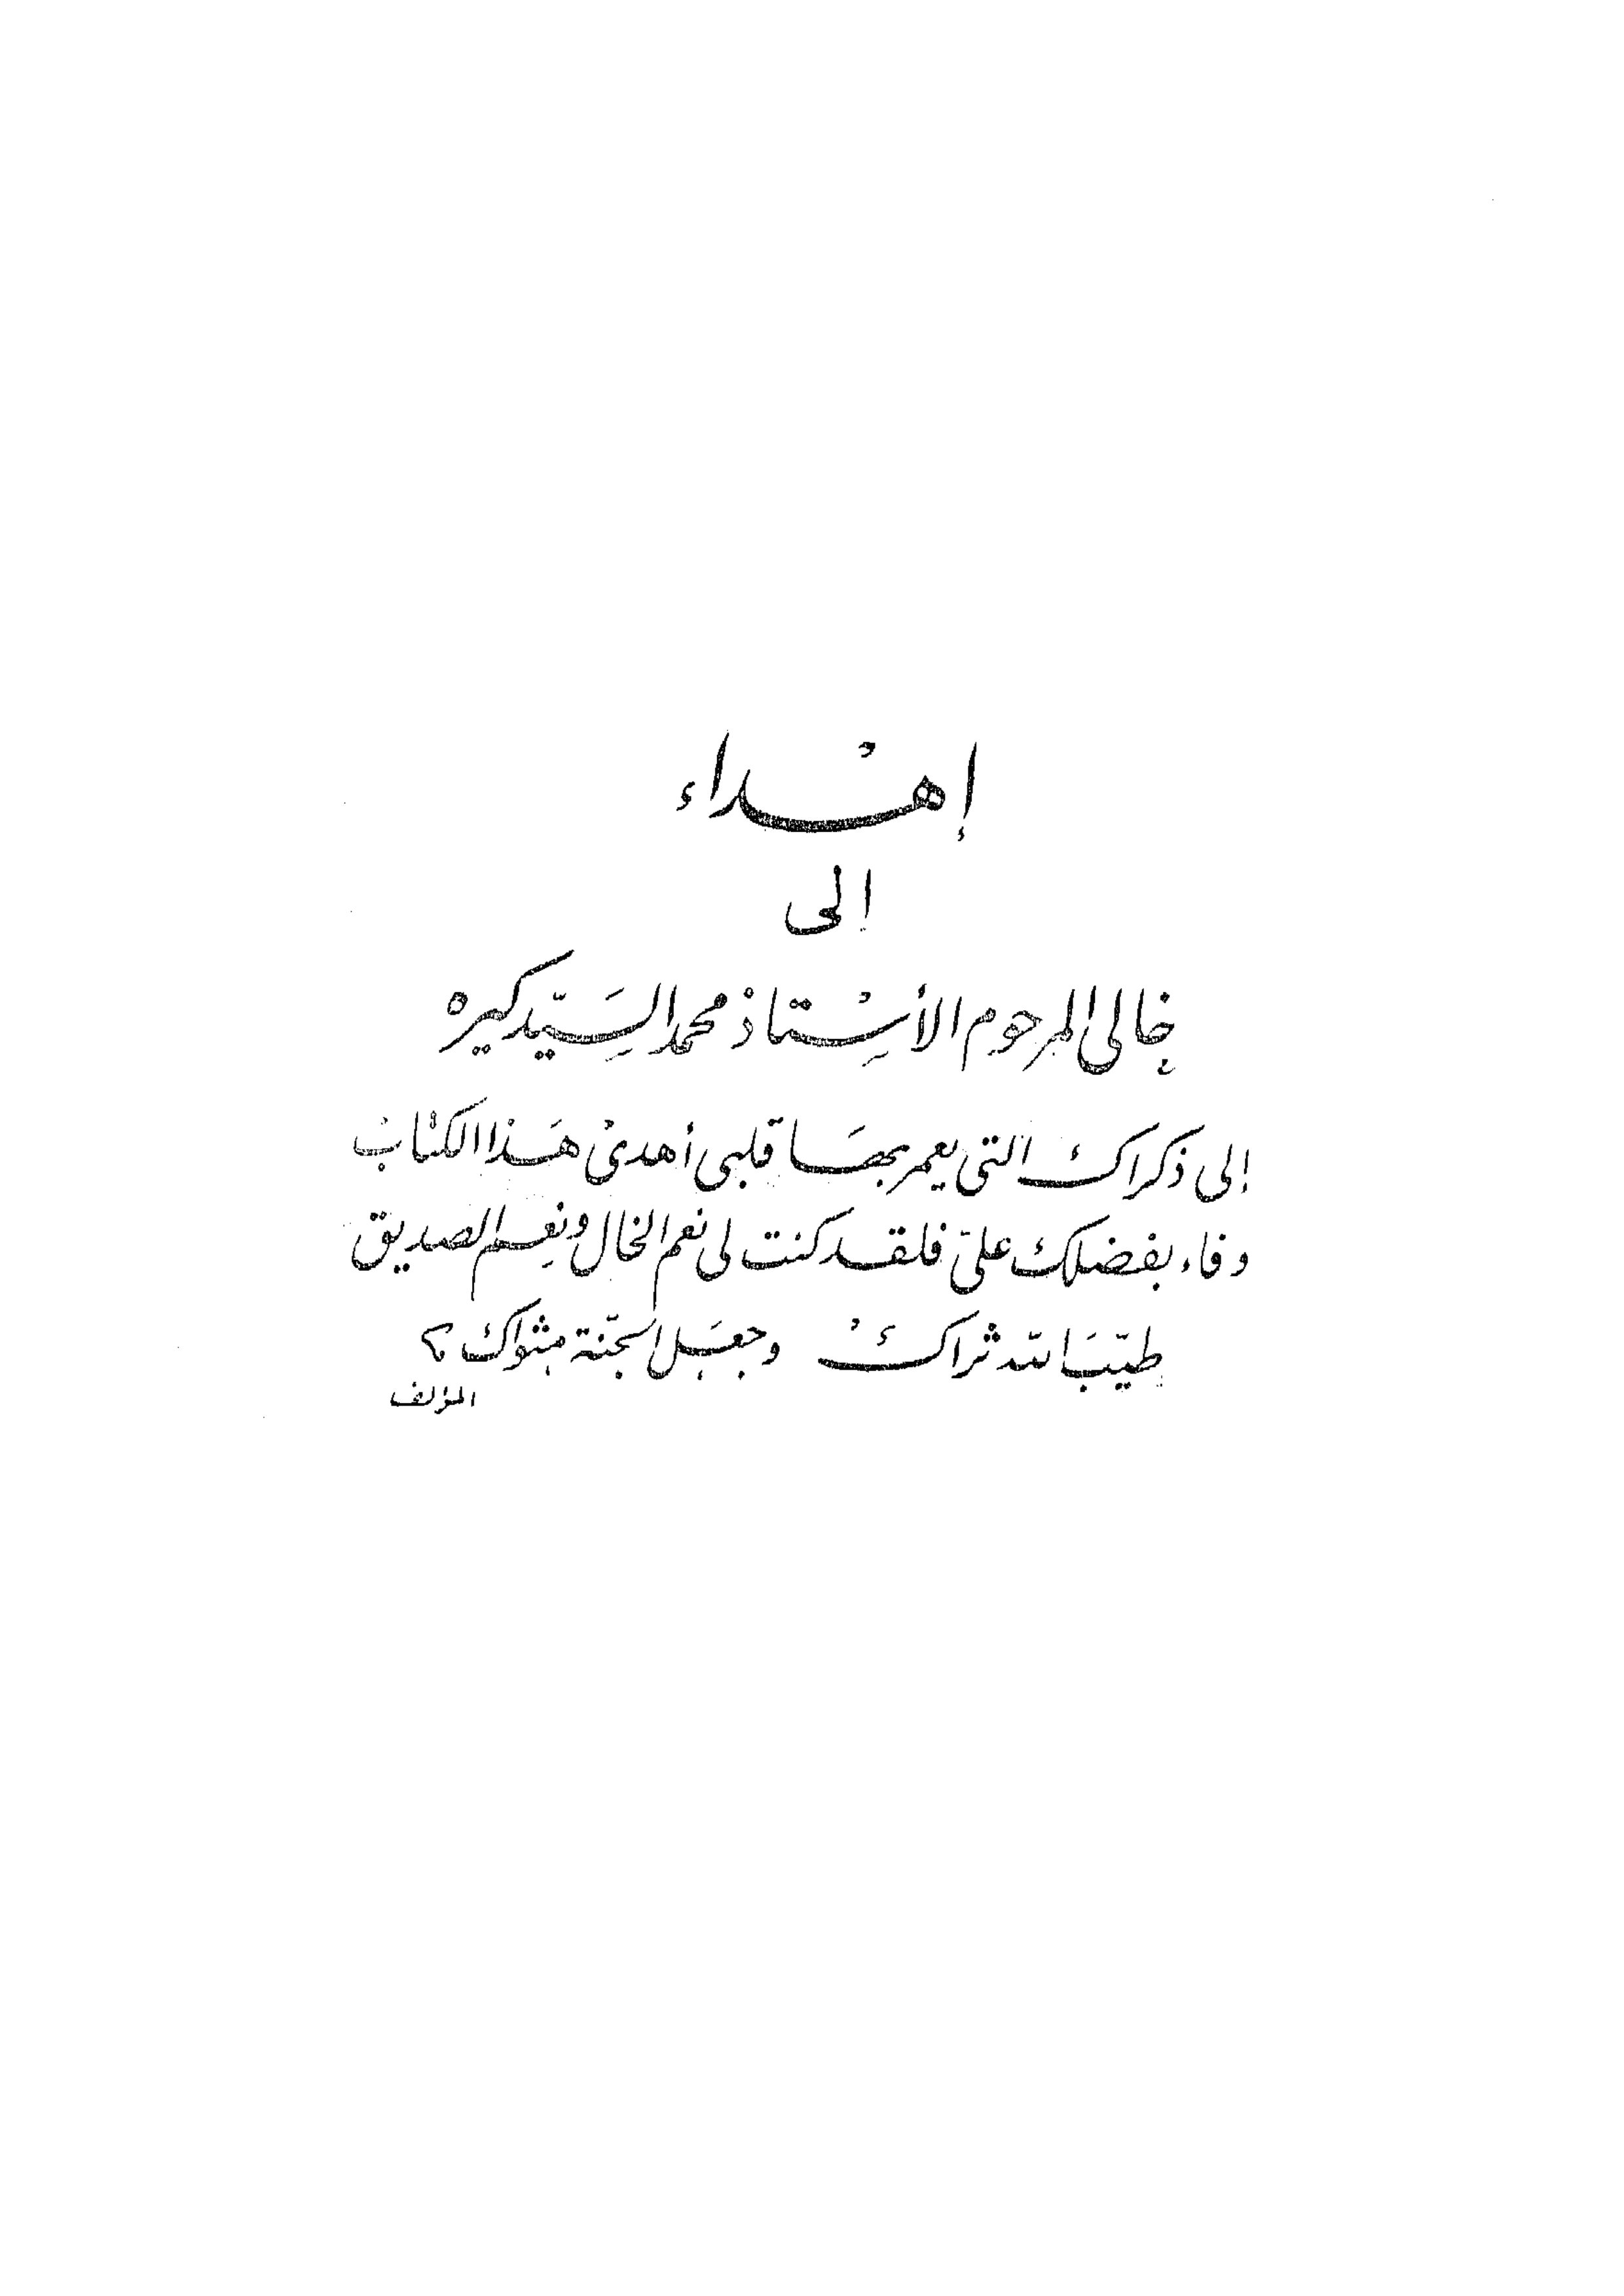 إهْداء
إلى
خالى المرحوم الأسْتاذ محمد السَيّد كيره
إلى ذكراك التى يعمر بهَا قلبى أهدى هَذا الكتاب
وفاء بفضلك علىّ فلقد كنت لى نعم الخال ونعم الصديق
طيّبَ الله ثراك وجعَل الجنّة مثواك
المؤلف